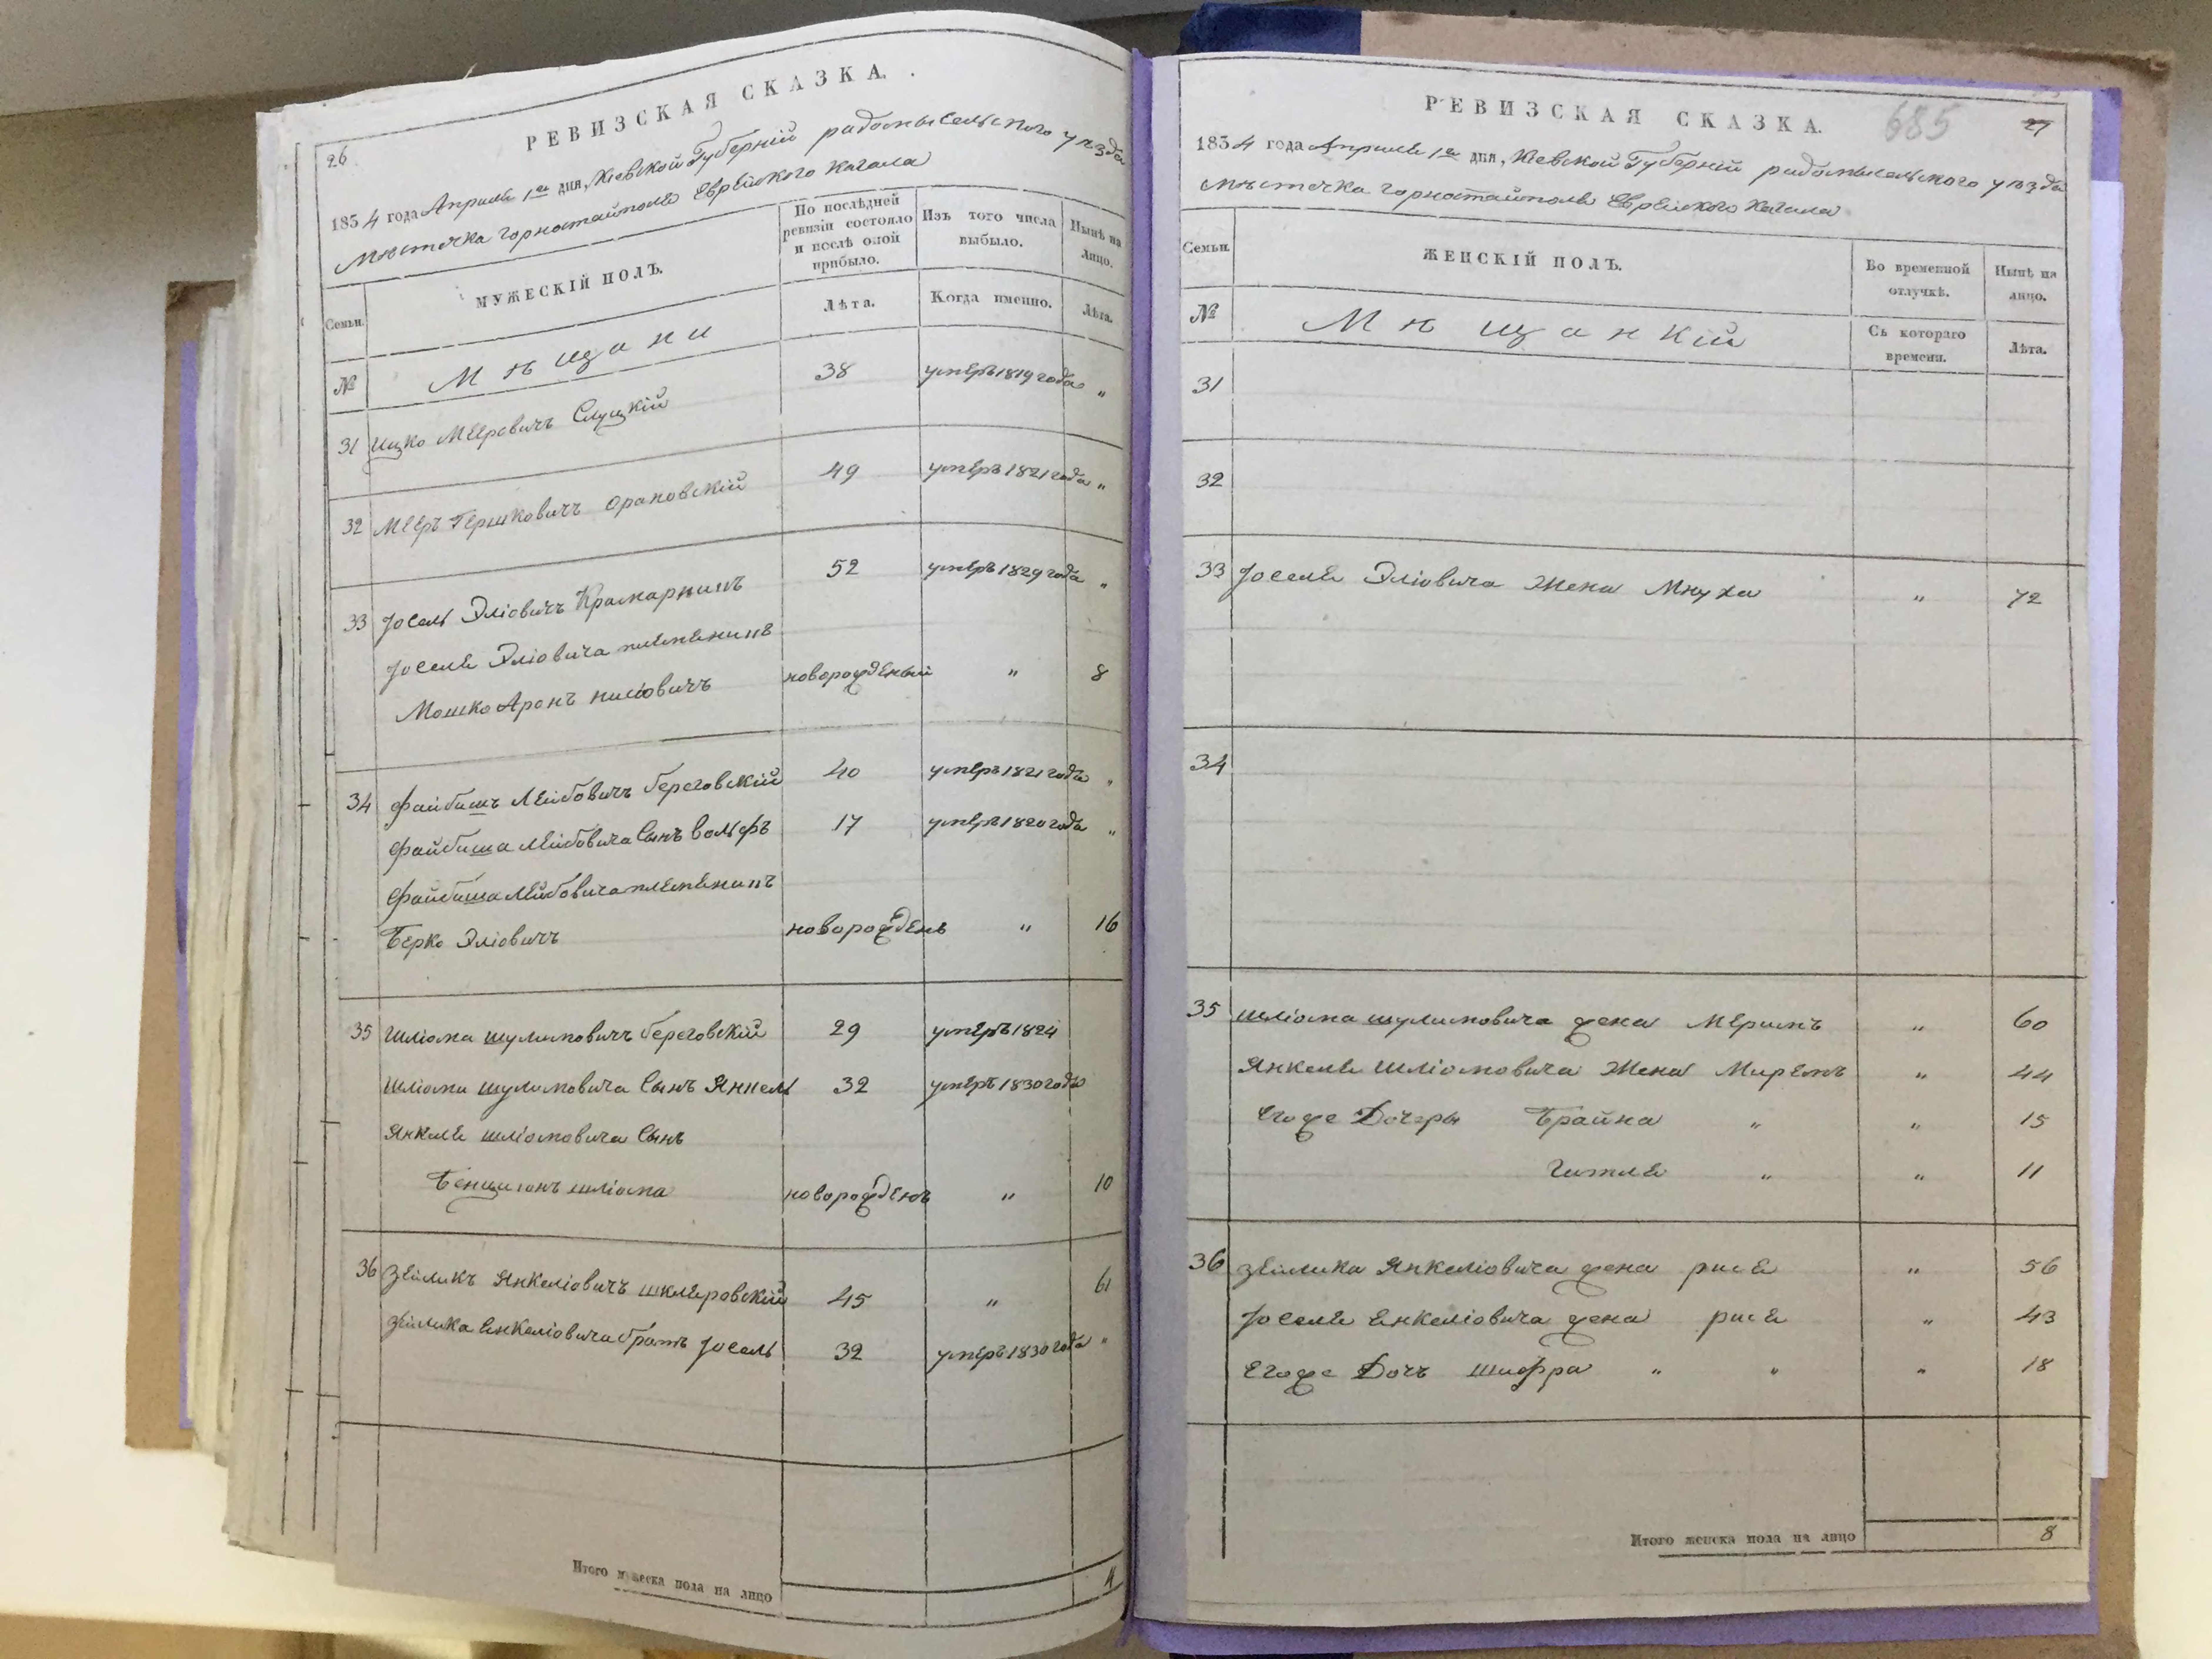 26
РЕВИЗСКАЯ СКАЗКА.
1834 года Апреля 1го дня, Кіевской Губерніи радомысельского уѣзда
мѣстечка горностайполя Еврейского Кагала
Семьи.
МУЖЕСКІЙ ПОЛЪ.
По послѣдней ревизіи состояло и послѣ оной прибыло.
Изъ того числа выбыло.
Нынѣ на лицо.
№
Мѣщани
Лѣта.
Когда именно.
Лѣта.
31 Ицко Мееровичъ Слуцкій 38 умеръ 1819 года "
32 Мееръ Гершковичъ орановскій 49 умеръ 1821 года "
33 Іосель Эліовичъ Крамарникъ 52 умеръ 1829 года "
Іоселя Эліовича племеникъ
Мошко Аронъ нисіовичъ новорожденый " 8
34 Файбишъ Лейбовичъ береговскій 40 умеръ 1821 года "
Файбиша Лейбовича Сынъ Вольфъ 17 умеръ 1820 года "
Файбиша Лейбовича племеникъ
Берко Эліовичъ новорожденъ " 16
35 шліома шулимовичъ береговскій 29 умеръ 1824
шліоми шулимовича Сынъ Янкель 32 умеръ 1830 года
Янкеля шліомовича Сынъ
Бенционъ шліома новорожденъ " 10
36 Зейликъ Янкеліовичъ шклеровскій 45 " 61
Зейлика Енкеліовича братъ Іосель 32 умеръ 1830 года "
Итого мужеска пола на лицо 4
685
27
РЕВИЗСКАЯ СКАЗКА.
1834 года Апреля 1го дня, Кіевской Губерніи радомысельского уѣзда
мѣстечка горностайполя Еврейского Кагала
Семьи.
ЖЕНСКІЙ ПОЛЪ.
Во временной отлучкѣ.
Нынѣ на лицо.
№
Мѣщанкій
Съ котораго времени.
Лѣта.
31
32
33 Іоселя Эліовича Жена Мнуха " 72
34
35 шліома шулимовича жена Меримъ " 60
Янкеля шліомовича Жена Миремъ " 44
Егоже Дочеры Брайна " " 15
Гитля " " 11
36 Зейлика Янкеліовича жена рися " 56
Іоселя Енкеліовича жена рися " 43
Егоже Дочъ шифра " " " 18
Итого женска пола на лицо 8